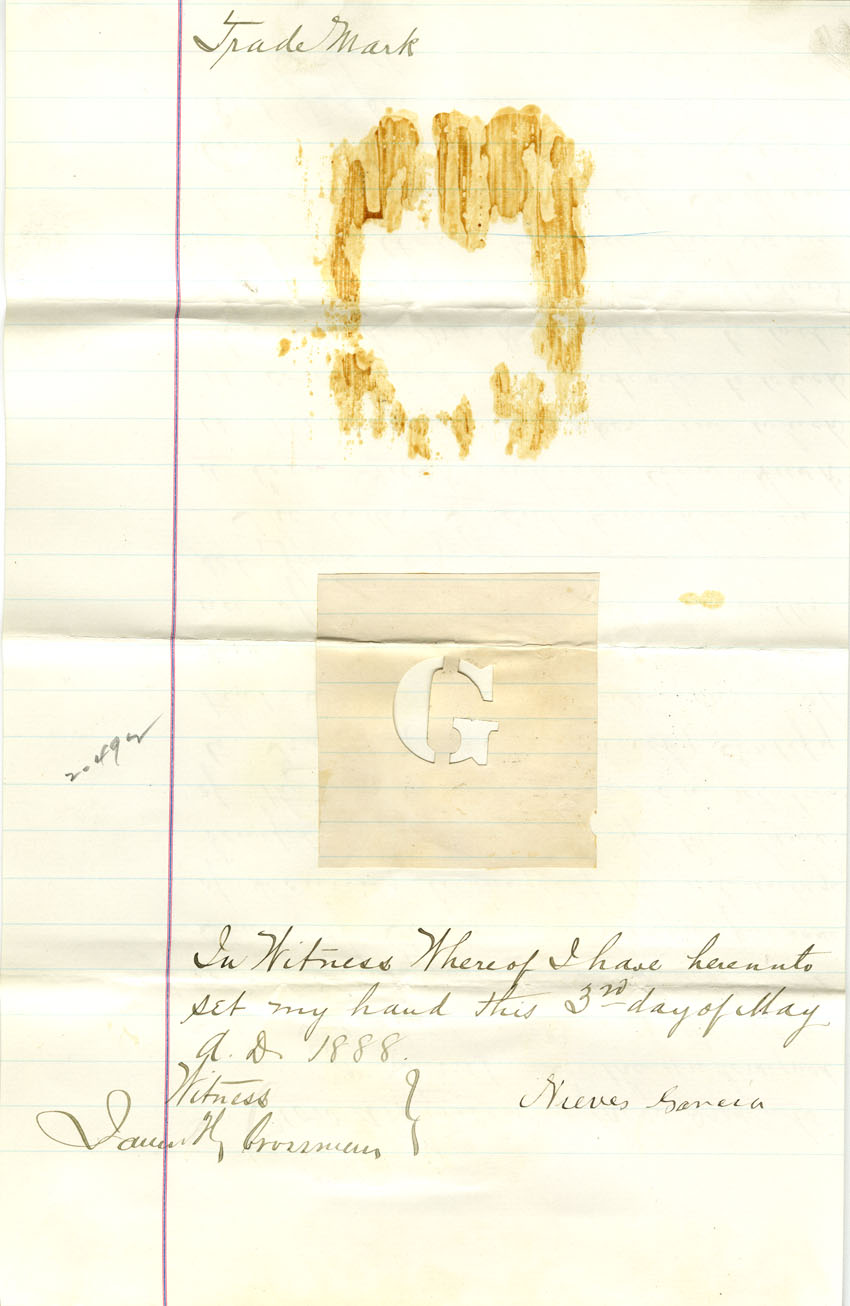 Trade Mark
G
2.492
In Witness Whereof I have hereunto
set my hand this 3rd day of May
A. D. 1888.
Witness
Nieves Garcia
James H. Crossman